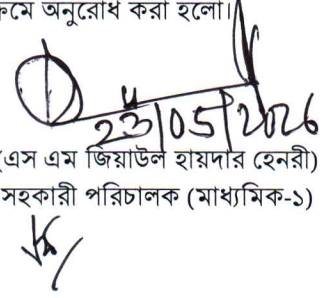 ক্রমে অনুরোধ করা হলো।
23/05/2026
(এস এম জিয়াউল হায়দার হেনরী)
সহকারী পরিচালক (মাধ্যমিক-১)